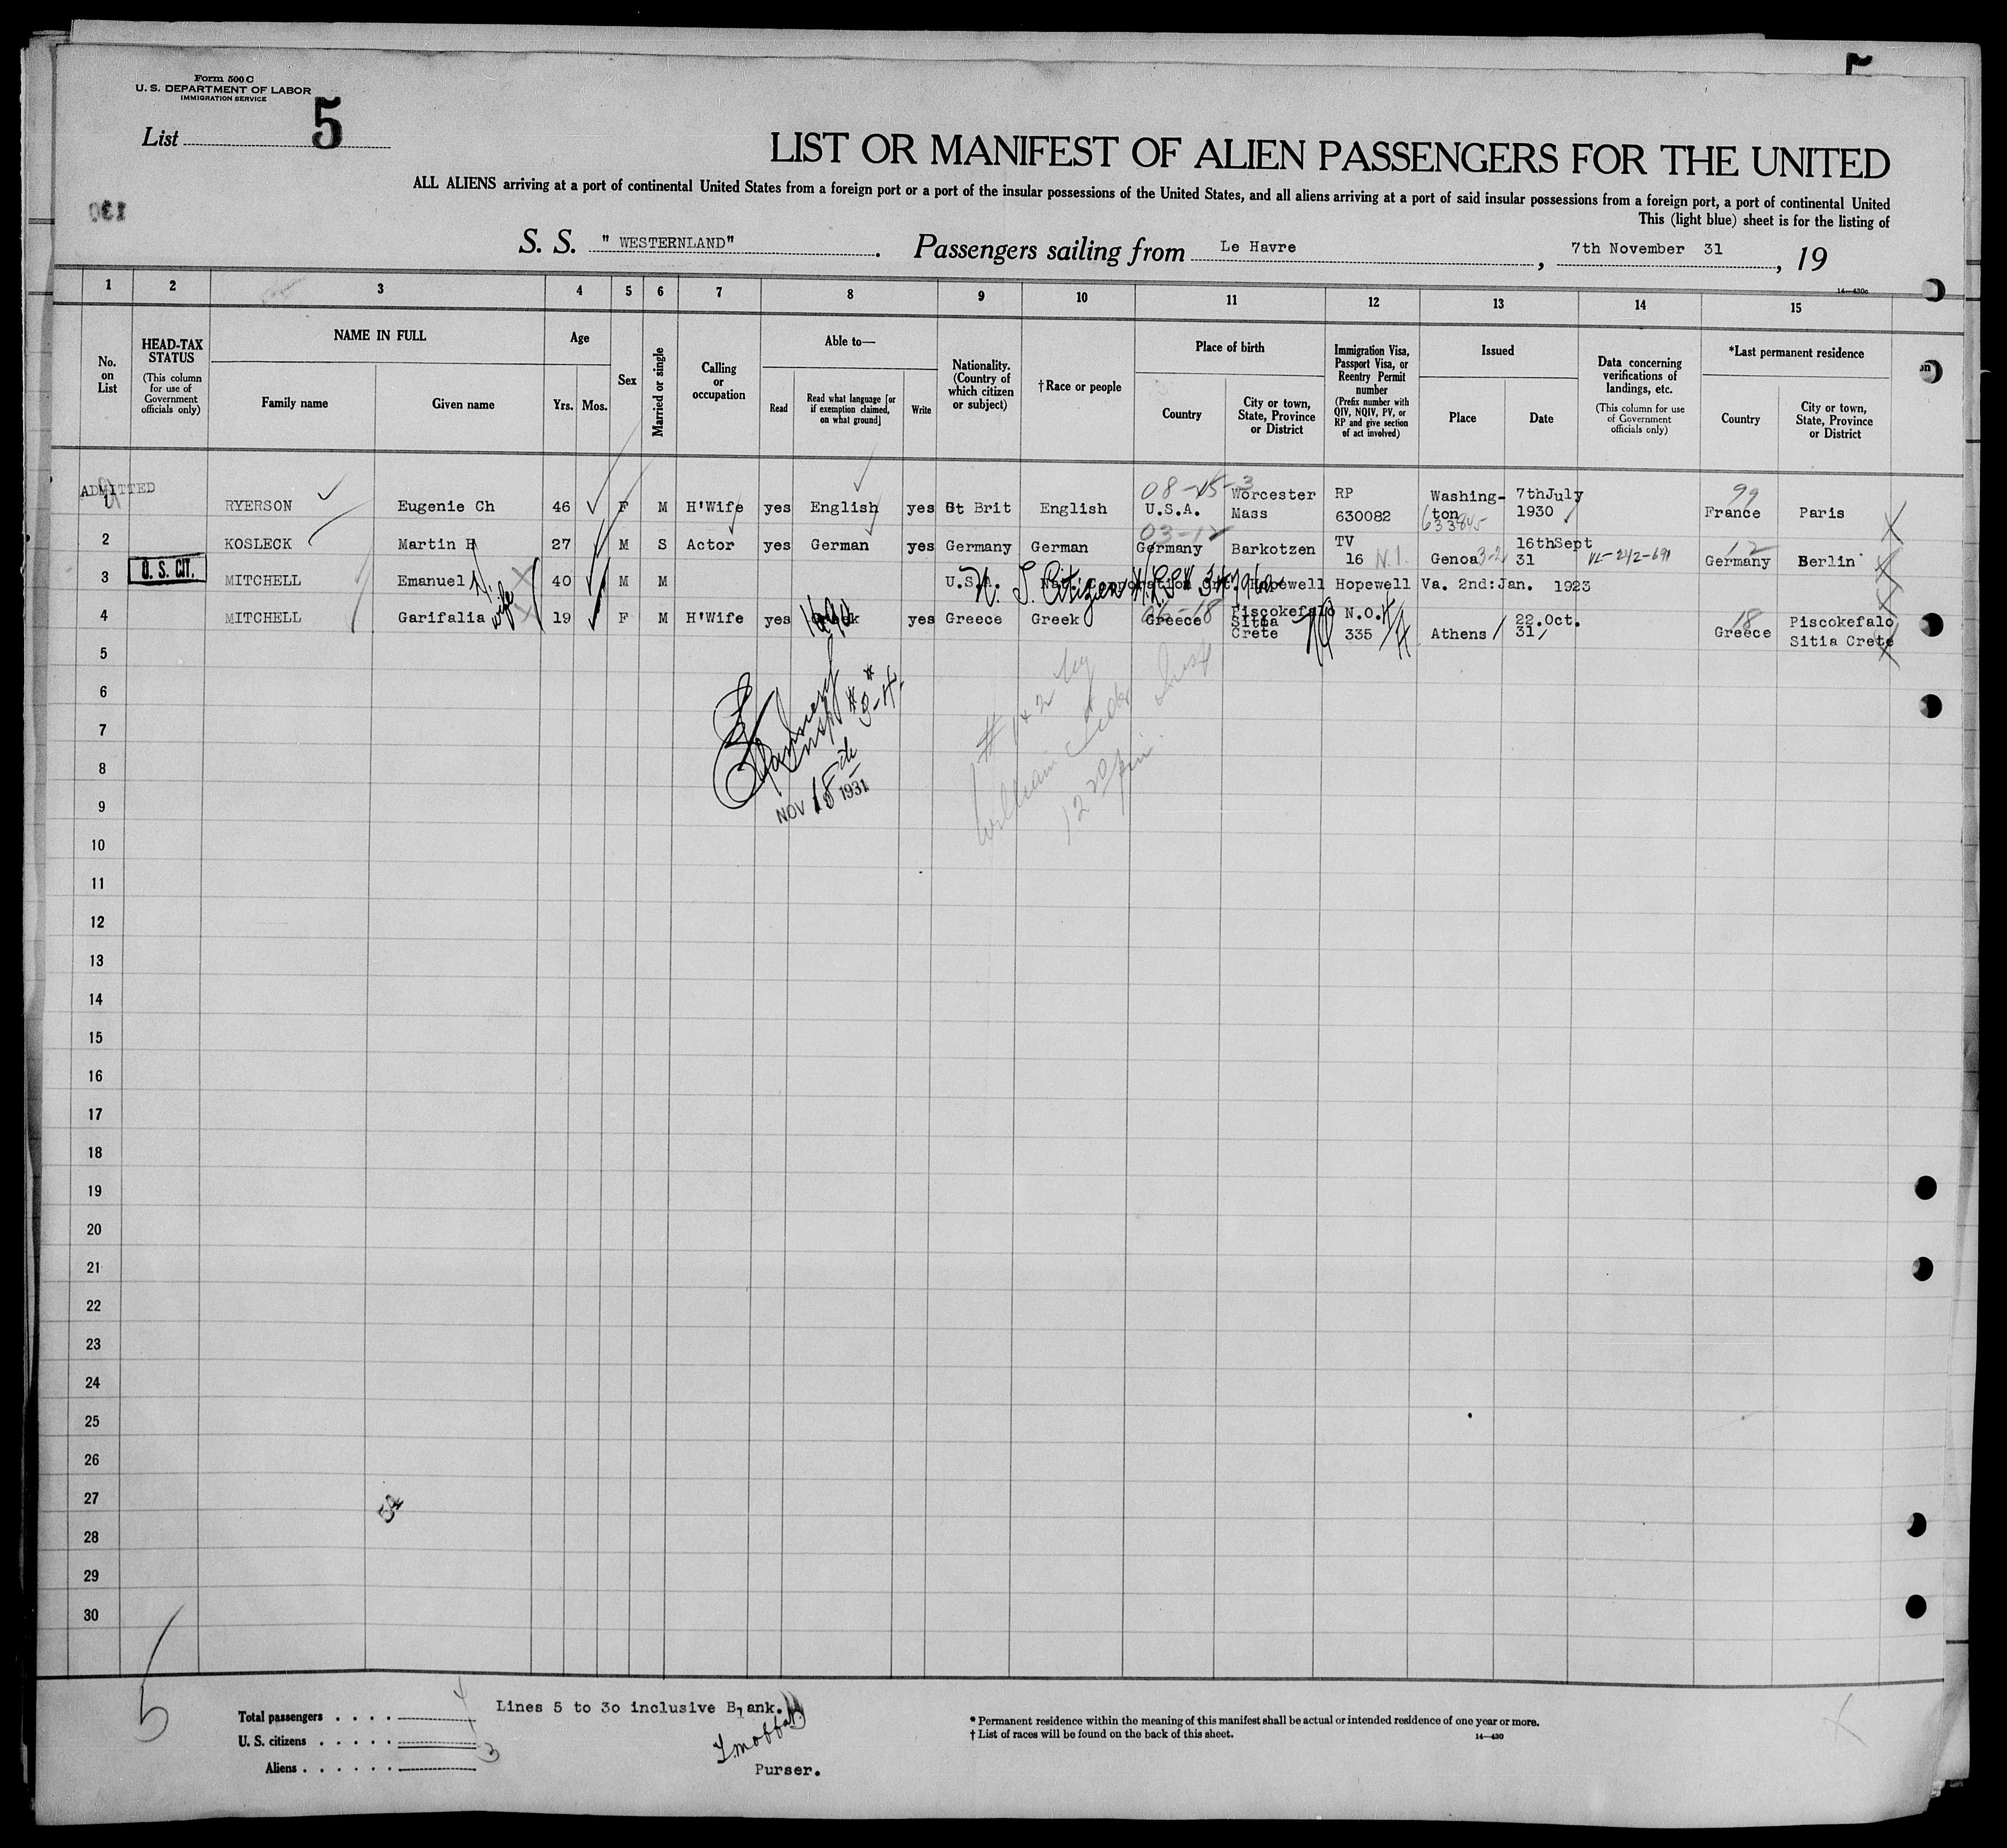 Form 500 C
U. S. DEPARTMENT OF LABOR
IMMIGRATION SERVICE
List 5
LIST OR MANIFEST OF ALIEN PASSENGERS FOR THE UNITED
ALL ALIENS arriving at a port of continental United States from a foreign port or a port of the insular possessions of the United States, and all aliens arriving at a port of said insular possessions from a foreign port, a port of continental United
This (light blue) sheet is for the listing of
S. S. " WESTERNLAND" . Passengers sailing from Le Havre , 7th November 31 , 19
14—430c
1 2 3 4 5 6 7 8 9 10 11 12 13 14 15
No. on List
HEAD-TAX STATUS (This column for use of Government officials only)
NAME IN FULL
Family name
Given name
Age
Yrs. Mos.
Sex
Married or single
Calling or occupation
Able to—
Read
Read what language [or if exemption claimed, on what ground]
Write
Nationality. (Country of which citizen or subject)
†Race or people
Place of birth
Country
City or town, State, Province or District
Immigration Visa, Passport Visa, or Reentry Permit number (Prefix number with QIV, NQIV, PV, or RP and give section of act involved)
Issued
Place
Date
Data concerning verifications of landings, etc. (This column for use of Government officials only)
*Last permanent residence
Country
City or town, State, Province or District
ADMITTED
1 RYERSON Eugenie Ch 46 F M H'Wife yes English yes Gt Brit English 08-15-3 U.S.A. Worcester Mass RP 630082 Washing-ton 633845 7thJuly 1930 99 France Paris
2 KOSLECK Martin H 27 M S Actor yes German yes Germany German 03-12 Germany Barkotzen TV 16 N.I. Genoa 3-2 16thSept 31 12-242-691 12 Germany Berlin
3 U. S. CIT. MITCHELL Emanuel 40 M M U.S.A. U. S. Citizen Hopewell Hopewell Va. 2nd:Jan. 1923
4 MITCHELL Garifalia wife 19 F M H'Wife yes Greek yes Greece Greek 06-18 Greece Piscokefalo Sitia Crete N.Q. 335 Athens 22.Oct. 31 18 Greece Piscokefalo Sitia Crete
5
6
7
8
9
10
11
12
13
14
15
16
17
18
19
20
21
22
23
24
25
26
27
28
29
30
Insp # 3-4
NOV 18th 1931
# 1 & 2 by
William Insp
12 20 pm
Total passengers . . . . 4
U. S. citizens . . . . .
Aliens . . . . . . 3
Lines 5 to 30 inclusive Blank.
Purser.
* Permanent residence within the meaning of this manifest shall be actual or intended residence of one year or more.
† List of races will be found on the back of this sheet.
14—430